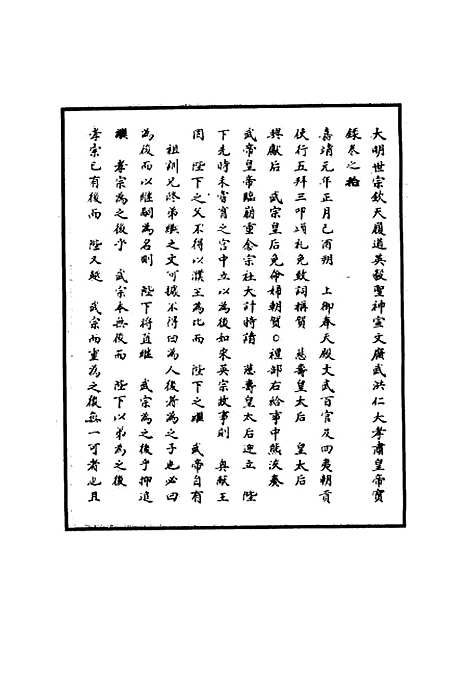 大明世宗欽天履道英毅聖神宣文廣武洪仁大孝肅皇帝實
錄卷之拾
嘉靖元年正月己酉朔　上御奉天殿文武百官及四夷朝貢
使行五拜三叩頭礼免致詞撰賀　慈壽皇太后　皇太后
興獻后　武宗皇后免命婦朝賀○禮部右給事中熊浹奏
武帝皇帝臨崩重念宗社大計特請　慈壽皇太后迎立　陛
下先時未嘗育之宮中立以為後如宋英宗故事則　興獻王
固　陛下之父不得以濮王為比而　陛下之繼　武帝自有
祖訓兄終弟繼之文可據不得曰為人後者為之子也必曰
為後而以繼嗣為名則　陛下將直繼　武宗為之後乎抑追
繼　孝宗為之後乎　武宗本無後而　陛下以弟為之後
孝宗已有後而　陛下又越　武宗而重為之後無一可者也且